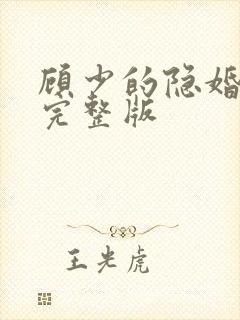 顾少的隐婚
完整版
王光虎